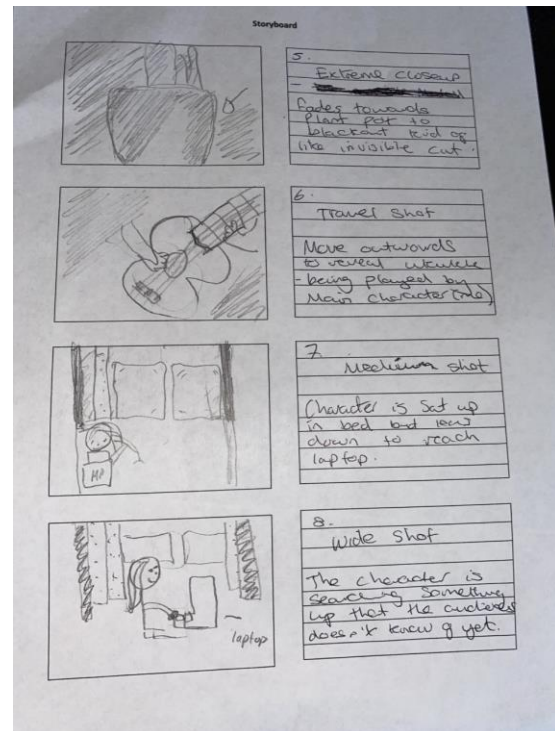 Storyboard
5.
Extreme closeup
-
fades towards
plant pot to
blackout kind of
like invisible cut.
6.
Travel shot
Move outwards
to reveal ukulele
- being played by
Main character (me)
7.
Medium shot
Character is sat up
in bed but leans
down to reach
laptop.
HP
8.
Wide shot
The character is
searching something
up that the audience
doesn't know of yet.
laptop